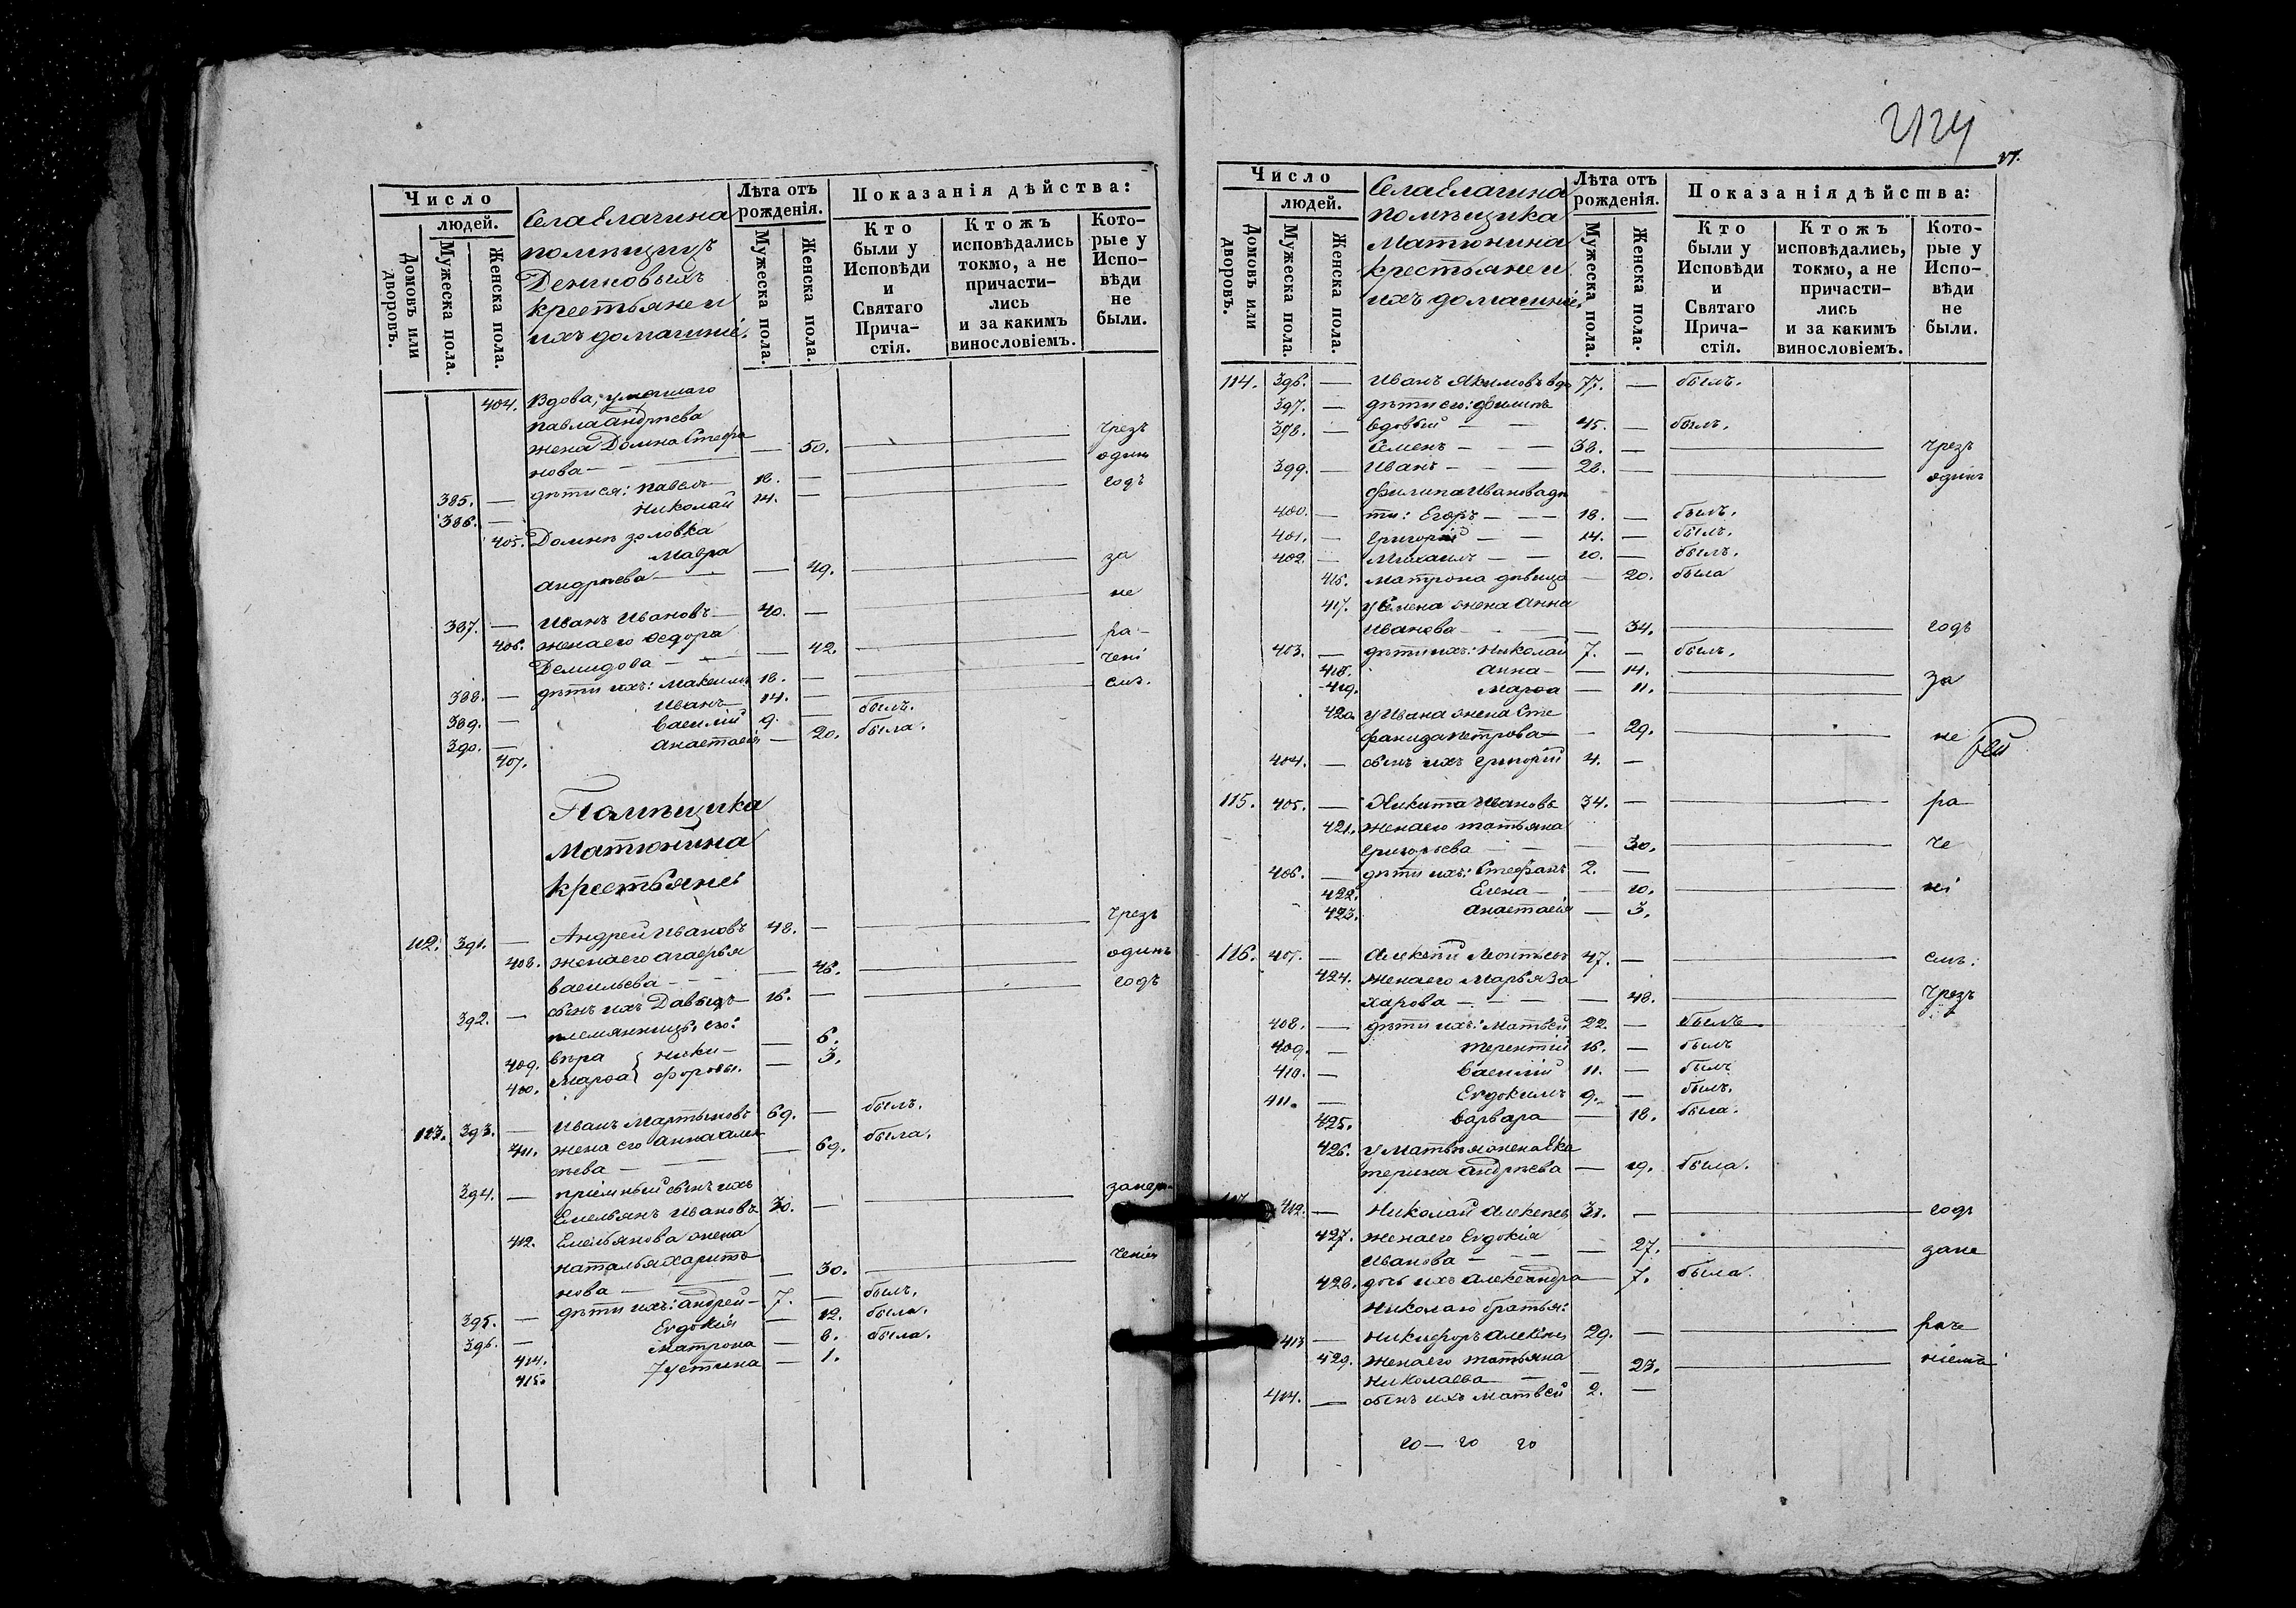 Число
людей.
Домовъ или дворовъ.
Мужеска пола.
Женска пола.
Села Елагина
помѣщицъ
Денисовыхъ
крестьяне и
ихъ домашніе.
Лѣта отъ рожденія.
Мужеска пола.
Женска пола.
Показанія дѣйства:
Кто были у Исповѣди и Святаго Причастія.
Ктожъ исповѣдались токмо, а не причастились и за какимъ винословіемъ.
Которые у Исповѣди не были.
404. Вдова, умершаго
Павла Андрѣева
жена Домна Стефа
нова — — 50. чрезъ
385. — дѣти ея: Павелъ 18. — одинъ
386. — Николай 14. — годъ
405. Домны золовка
Мавра
Андрѣева — — 49. за
387. — Иванъ Ивановъ 40. — не
406. жена его Ѳедора
Демидова — — 42. ра-
388. — дѣти ихъ: Максимъ 18. — чені
389. — Иванъ 14. — былъ. емъ.
390. — Василій 9. —
407. Анастасія — 20. была.
Помѣщика
Матюнина
крестьяне
112. 391. — Андрей Ивановъ 48. — чрезъ
408. жена его Агафья
Васильева — — 46. одинъ
392. — сынъ ихъ Давыдъ 16. — годъ
племянницы его:
409. Вѣра Ники- — 6.
410. Марѳа форовы. — 3.
113. 393. — Иванъ Мартыновъ 69. — былъ.
411. жена его Анна Алек
сѣева — — 69. была.
394. — пріемный сынъ ихъ
Емельянъ Ивановъ 30. — за нера-
412. Емельянова жена
Наталья Харито
нова — — 30. ченіемъ
395. — дѣти ихъ: Андрей 7. — былъ.
396. — Евдокія — 12. была.
414. Матрона — 8. была.
415. Устина — 1.
37.
Число
людей.
Домовъ или дворовъ.
Мужеска пола.
Женска пола.
Села Елагина
помѣщика
Матюнина
крестьяне и
ихъ домашніе.
Лѣта отъ рожденія.
Мужеска пола.
Женска пола.
Показанія дѣйства:
Кто были у Исповѣди и Святаго Причастія.
Ктожъ исповѣдались, токмо, а не причастились и за какимъ винословіемъ.
Которые у Исповѣди не были.
114. 396. — Иванъ Якимовъ вдо 77. — былъ.
397. — дѣти его: Филипъ
398. — вдовый — — 45. — былъ.
Семенъ — — 38. — чрезъ
399. — Иванъ — — 28. — одинъ
Филипа Иванова дѣ
400. — ти: Егоръ — — 18. — былъ.
401. — Григорій — — 14. — былъ.
402. — Михаилъ — — 10. — былъ.
416. Матрона дѣвица — 20. была
417. у Семена жена Анна
Иванова — — 34. годъ
403. — дѣти ихъ: Николай 7. — былъ.
418. Анна — — 14.
419. Марѳа — 11. за
420. у Ивана жена Сте
фанида Петрова — — 29. не
404. — сынъ ихъ Григорій 4. —
115. 405. — Никита Ивановъ 34. — ра
421. жена его Татьяна
Григорьева — — 30. че
406. — дѣти ихъ: Стефанъ 2. —
422. Елена — — 10. ні
423. Анастасія — 3.
116. 407. — Алексѣй Леонтьевъ 47. — емъ.
424. жена его Марья За
харова — — 48. чрезъ
408. — дѣти ихъ: Матвей 22. — былъ
409. — Терентій 16. — былъ
410. — Василій 11. — былъ
411. — Евдокимъ 9. — былъ.
425. Варвара — 18. была.
426. у Матвѣя жена Ека
терина Андрѣева — 19. была.
412. — Николай Алексѣевъ 31. — годъ
427. жена его Евдокія
Иванова — — 27. за не
428. дочь ихъ Александра — 7. была.
Николаю братья:
413 — Никифоръ Алексѣевъ 29. — раче
429. жена его Татьяна
Николаева — — 23. ніемъ
414. — сынъ ихъ Матвей 2. —